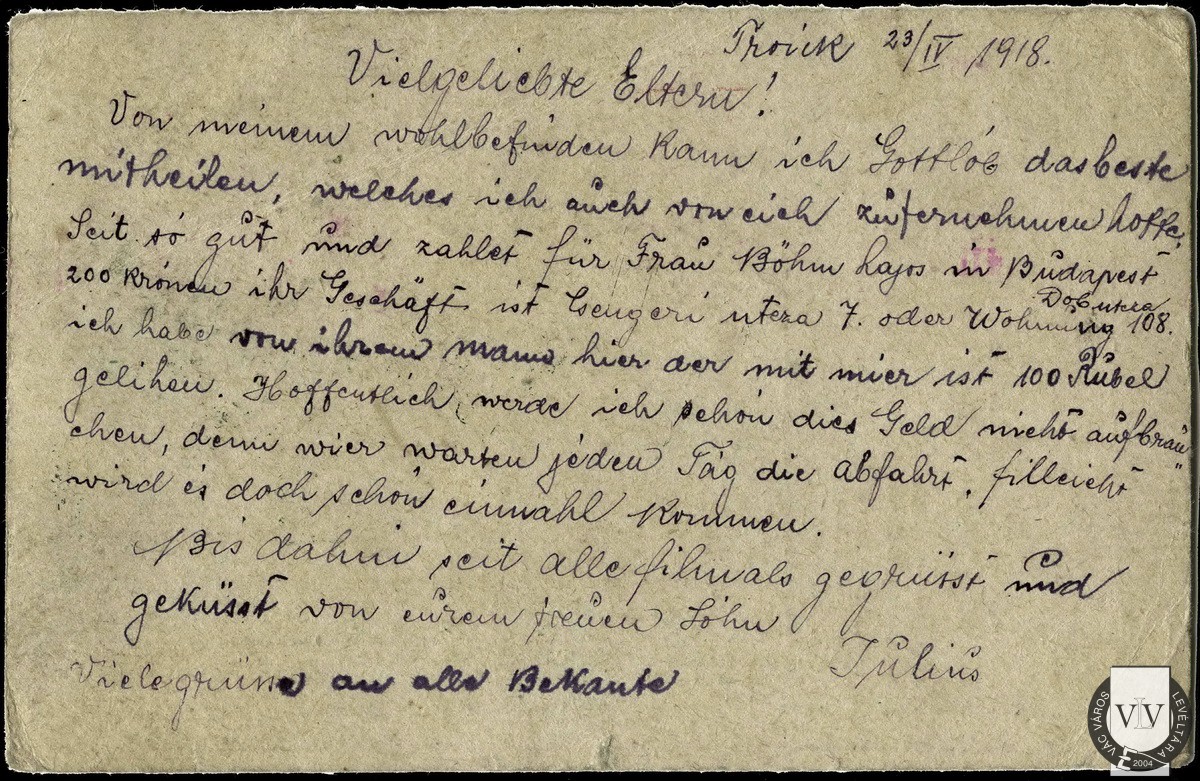 Troick 23/IV 1918.
Vielgeliebte Eltern!
Von meinem wohlbefinden kann ich Gottlob das beste
mitheilen, welches ich auch von eich zufernehmen hoffe.
Seit so gut und zahlet für Frau Böhm hajos in Budapest
200 kronen ihr Geschäft ist Csengeri utcza 7. oder Wohnung Dob utcza 108.
ich habe von ihrem mann hier der mit mier ist 100 Rubel
gelihen. Hoffentlich werde ich schon dies Geld nicht aufbrau"
chen, denn wier warten jeden Tag die abfahrt, filleicht
wird es doch schon einmahl kommen.
Bis dahin seit alle filmals gegrüsst und
geküsst von eurem treuen Sohn
Julius
Viele grüsse an alle Bekante
VÁC VÁROS LEVÉLTÁRA
VLV
2004